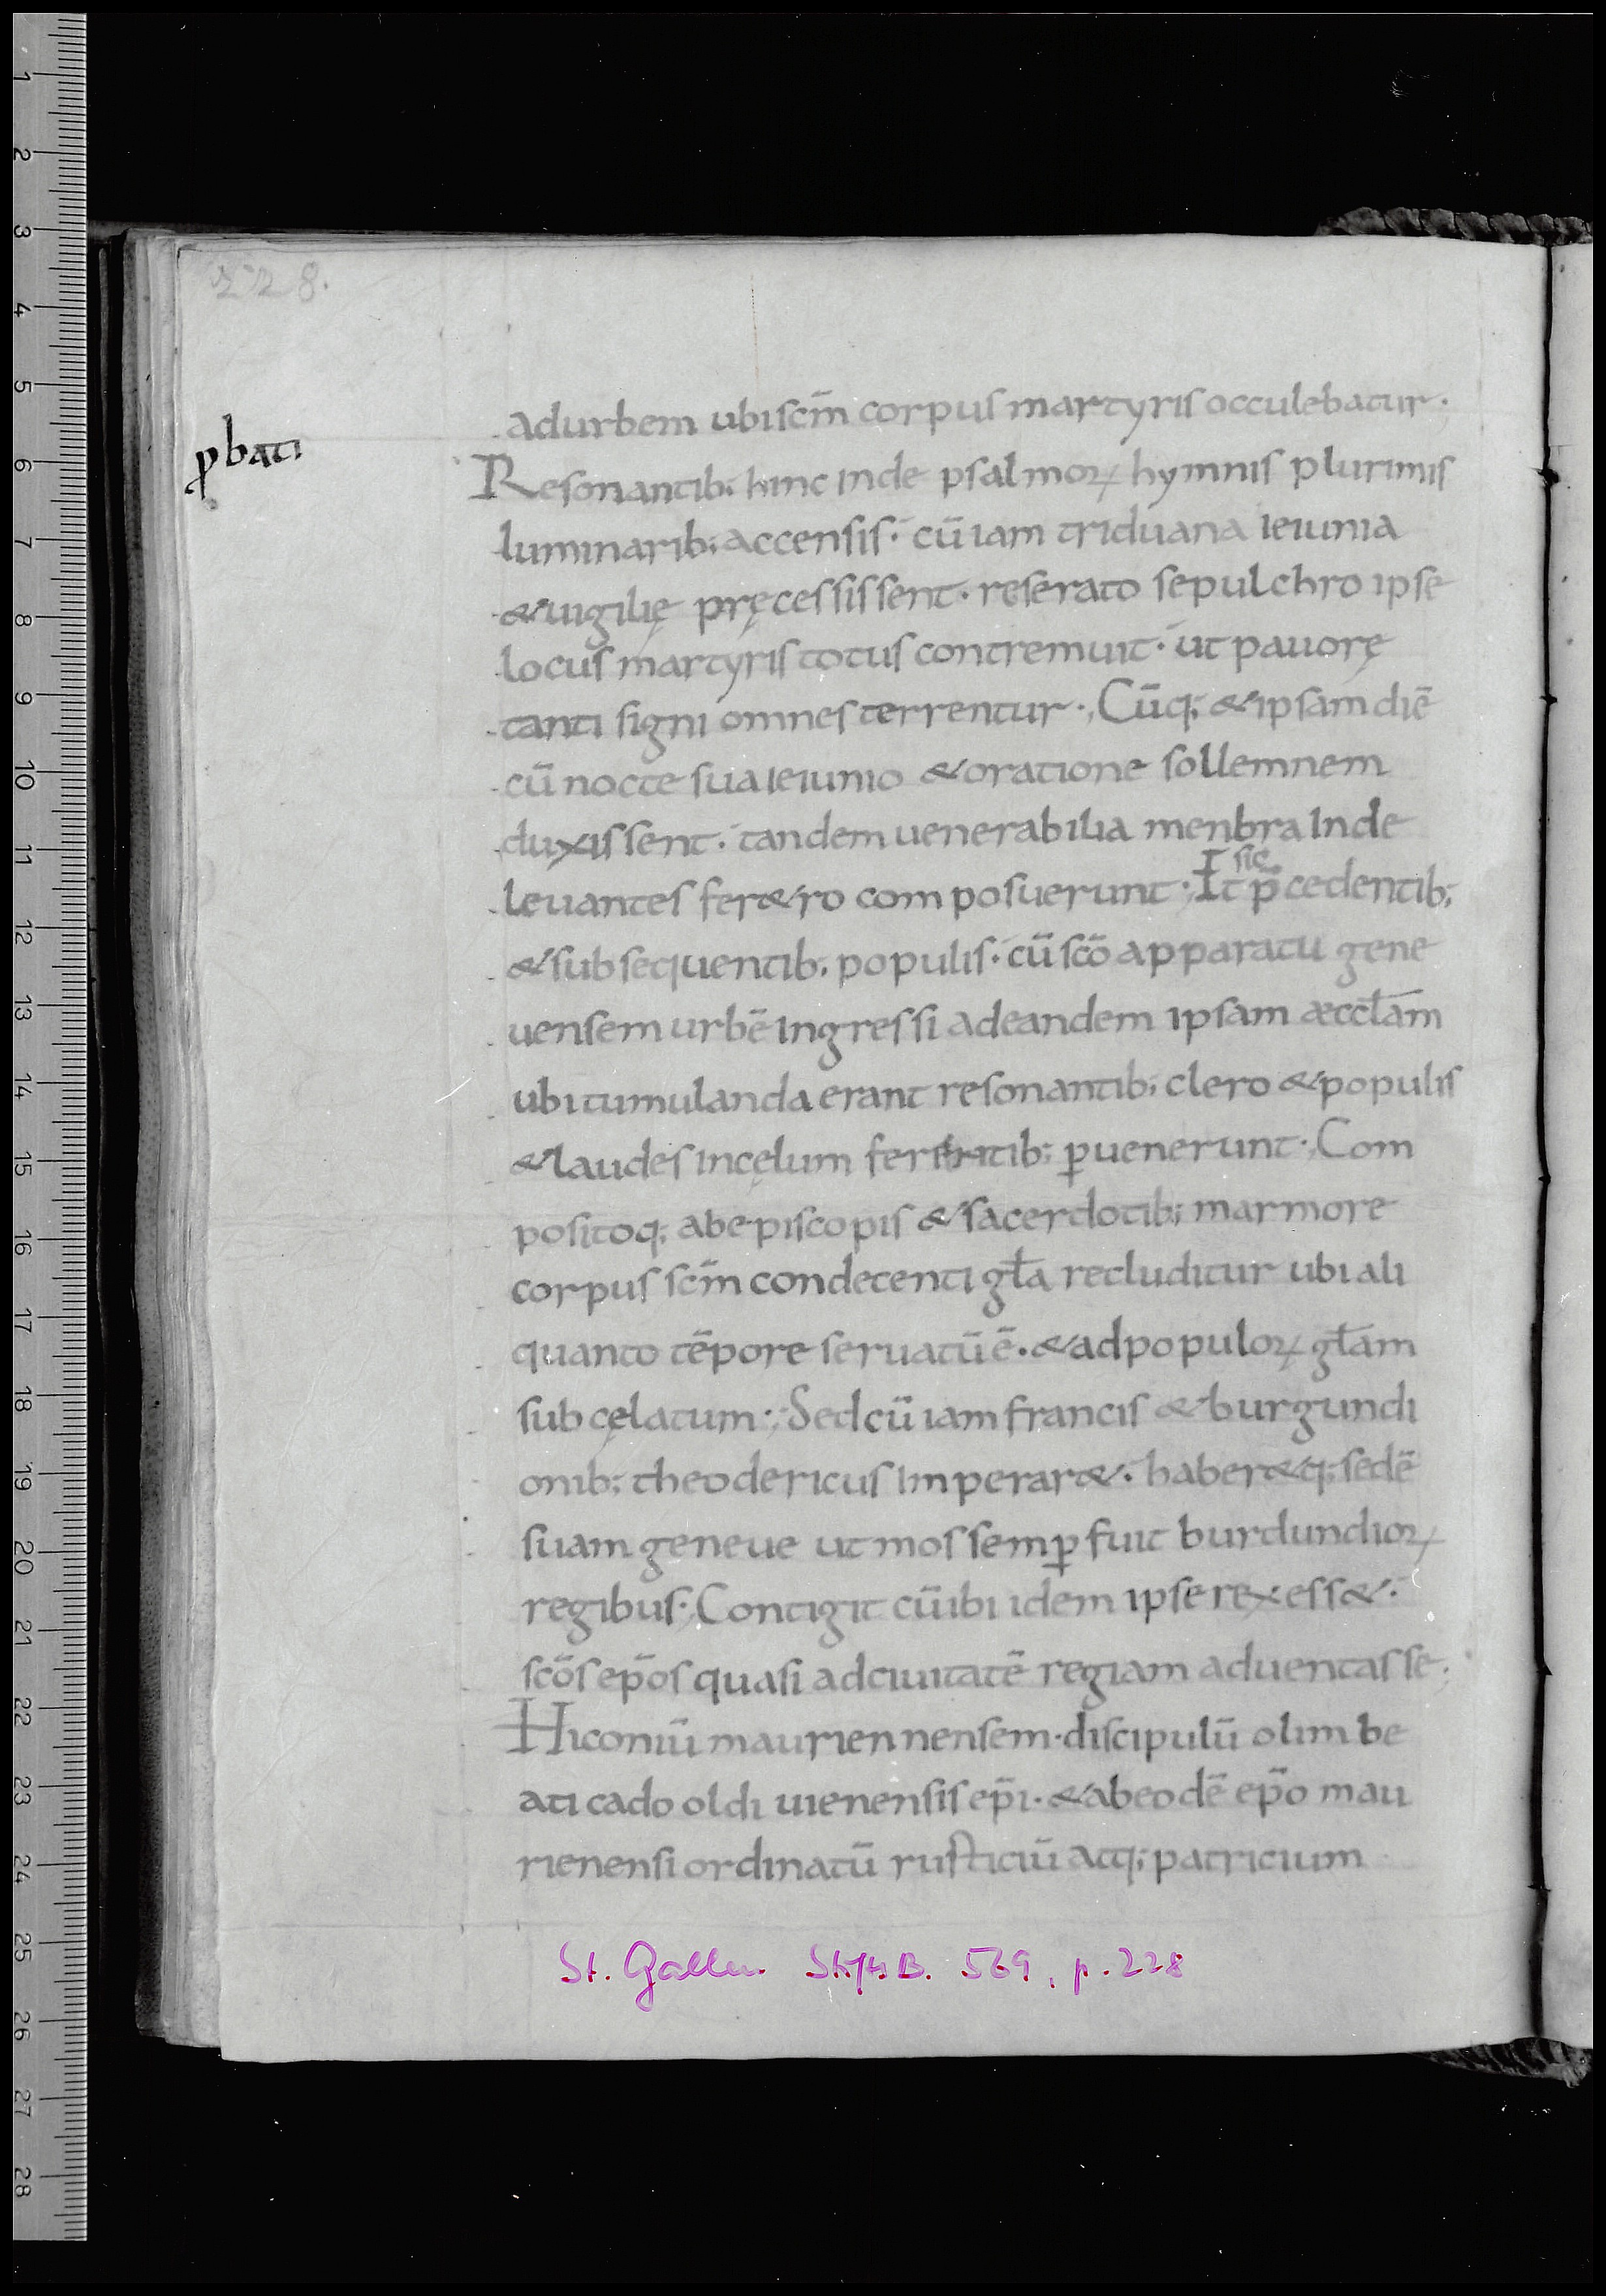 228.
ꝓbati
adurbem ubi scm̄ corpus martyris occulebatur·,
Resonantib; hinc inde psalmoꝝ hymnis plurimis
luminarib; accensis· cū iam triduana ieiunia
& uigilię pręcessissent· reserato sepulchro ipse
locus martyris totus contremuit· ut pauorę
tanti signi omnes terrentur·, Cūq; & ipsam diē
cū nocte sua ieiunio & oratione sollemnem
duxissent· tandem uenerabilia menbra Inde
leuantes fer&ro composuerunt·, It sic p̄cedentib;
& subsequentib; populis· cū scō apparatu gene
uensem urbē Ingressi adeandem ipsam æccl̄am
ubi tumulanda erant resonantib; clero & populis
& laudes incęlum ferentib; ꝑuenerunt·, Com
positoq; ab episcopis & sacerdotib; marmore
corpus scm̄ condecenti gl̄a recluditur ubi ali
quanto tēpore seruatū ē· & ad populoꝝ gl̄am
sub cęlatum·, Sed cū iam francis & burgundi
onib; theodericus Imperar&· haber&q; sedē
suam geneue ut mos semꝑ fuit burdundioꝝ
regibus·, Contigit cū ibi idem ipse rex ess&·
scōs ep̄os quasi adciuitatē regiam aduentasse·,
Hiconiū mauriennensem· discipulū olim be
ati cado oldi uienensis ep̄i· & abeodē ep̄o mau
rienensi ordinatū rusticiū atq; patricium
St. Gallen StiftsB. 569, p. 228
1
2
3
4
5
6
7
8
9
10
11
12
13
14
15
16
17
18
19
20
21
22
23
24
25
26
27
28